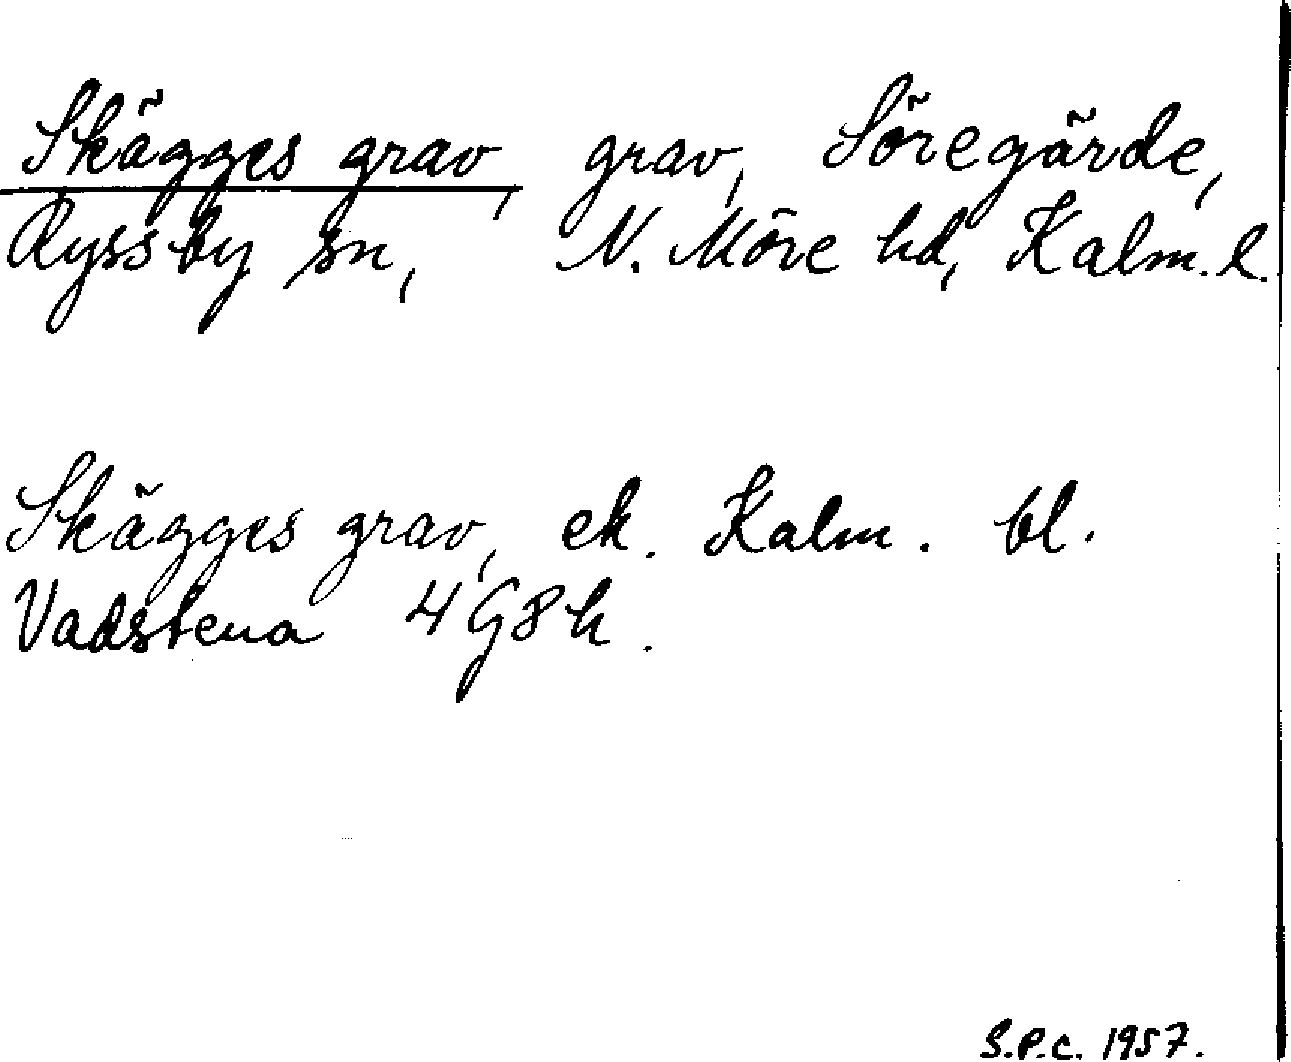 Skägges grav, grav, Söregärde,
Ryssby sn, N. Möre hd, Kalm. l.
Skägges grav, ek. Kalm. bl.
Vadstena 4G8h.
S.P.C. 1957.